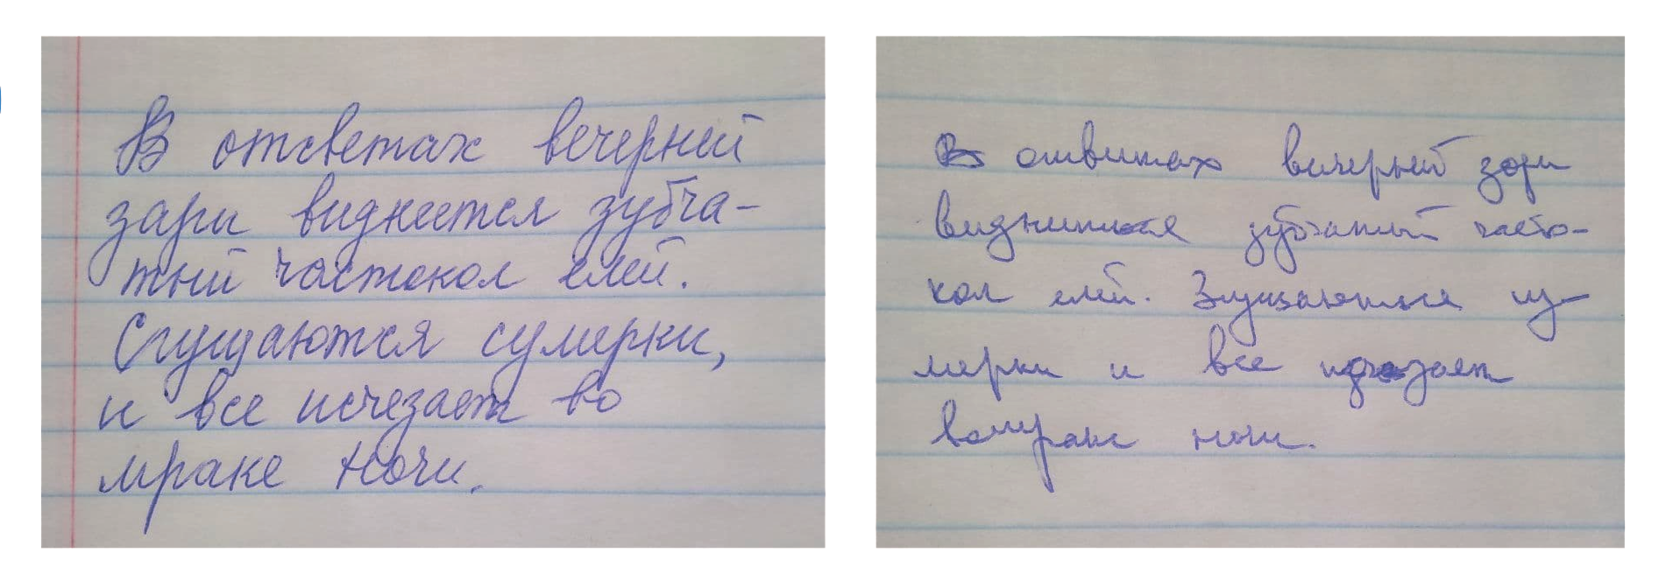 В отсветах вечерней
зари виднеется зубча-
тый частокол елей.
Сгущаются сумерки,
и все исчезает во
мраке ночи.
В отвитах вечерней зори
виднииться зубчатый часто-
кол елей. Згущаються цу-
мерки и все изчазает
вомраке ночи.